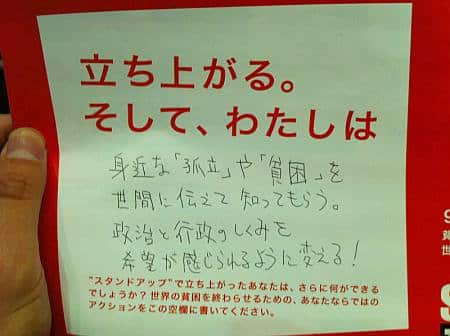 立ち上がる。
そして、わたしは
身近な「孤立」や「貧困」を
世間に伝えて知ってもらう。
政治と行政のしくみを
希望が感じられるように変える!
"スタンドアップ"で立ち上がったあなたは、さらに何ができる
でしょうか?世界の貧困を終わらせるための、あなたならではの
アクションをこの空欄に書いてください。